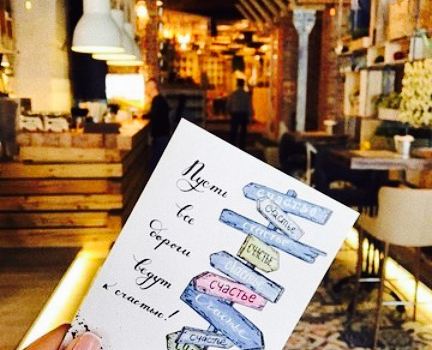 Пусть
все
дороги
ведут
к счастью!
счастье
счастье
счастье
счастье
счастье
счастье
счастье
счастье